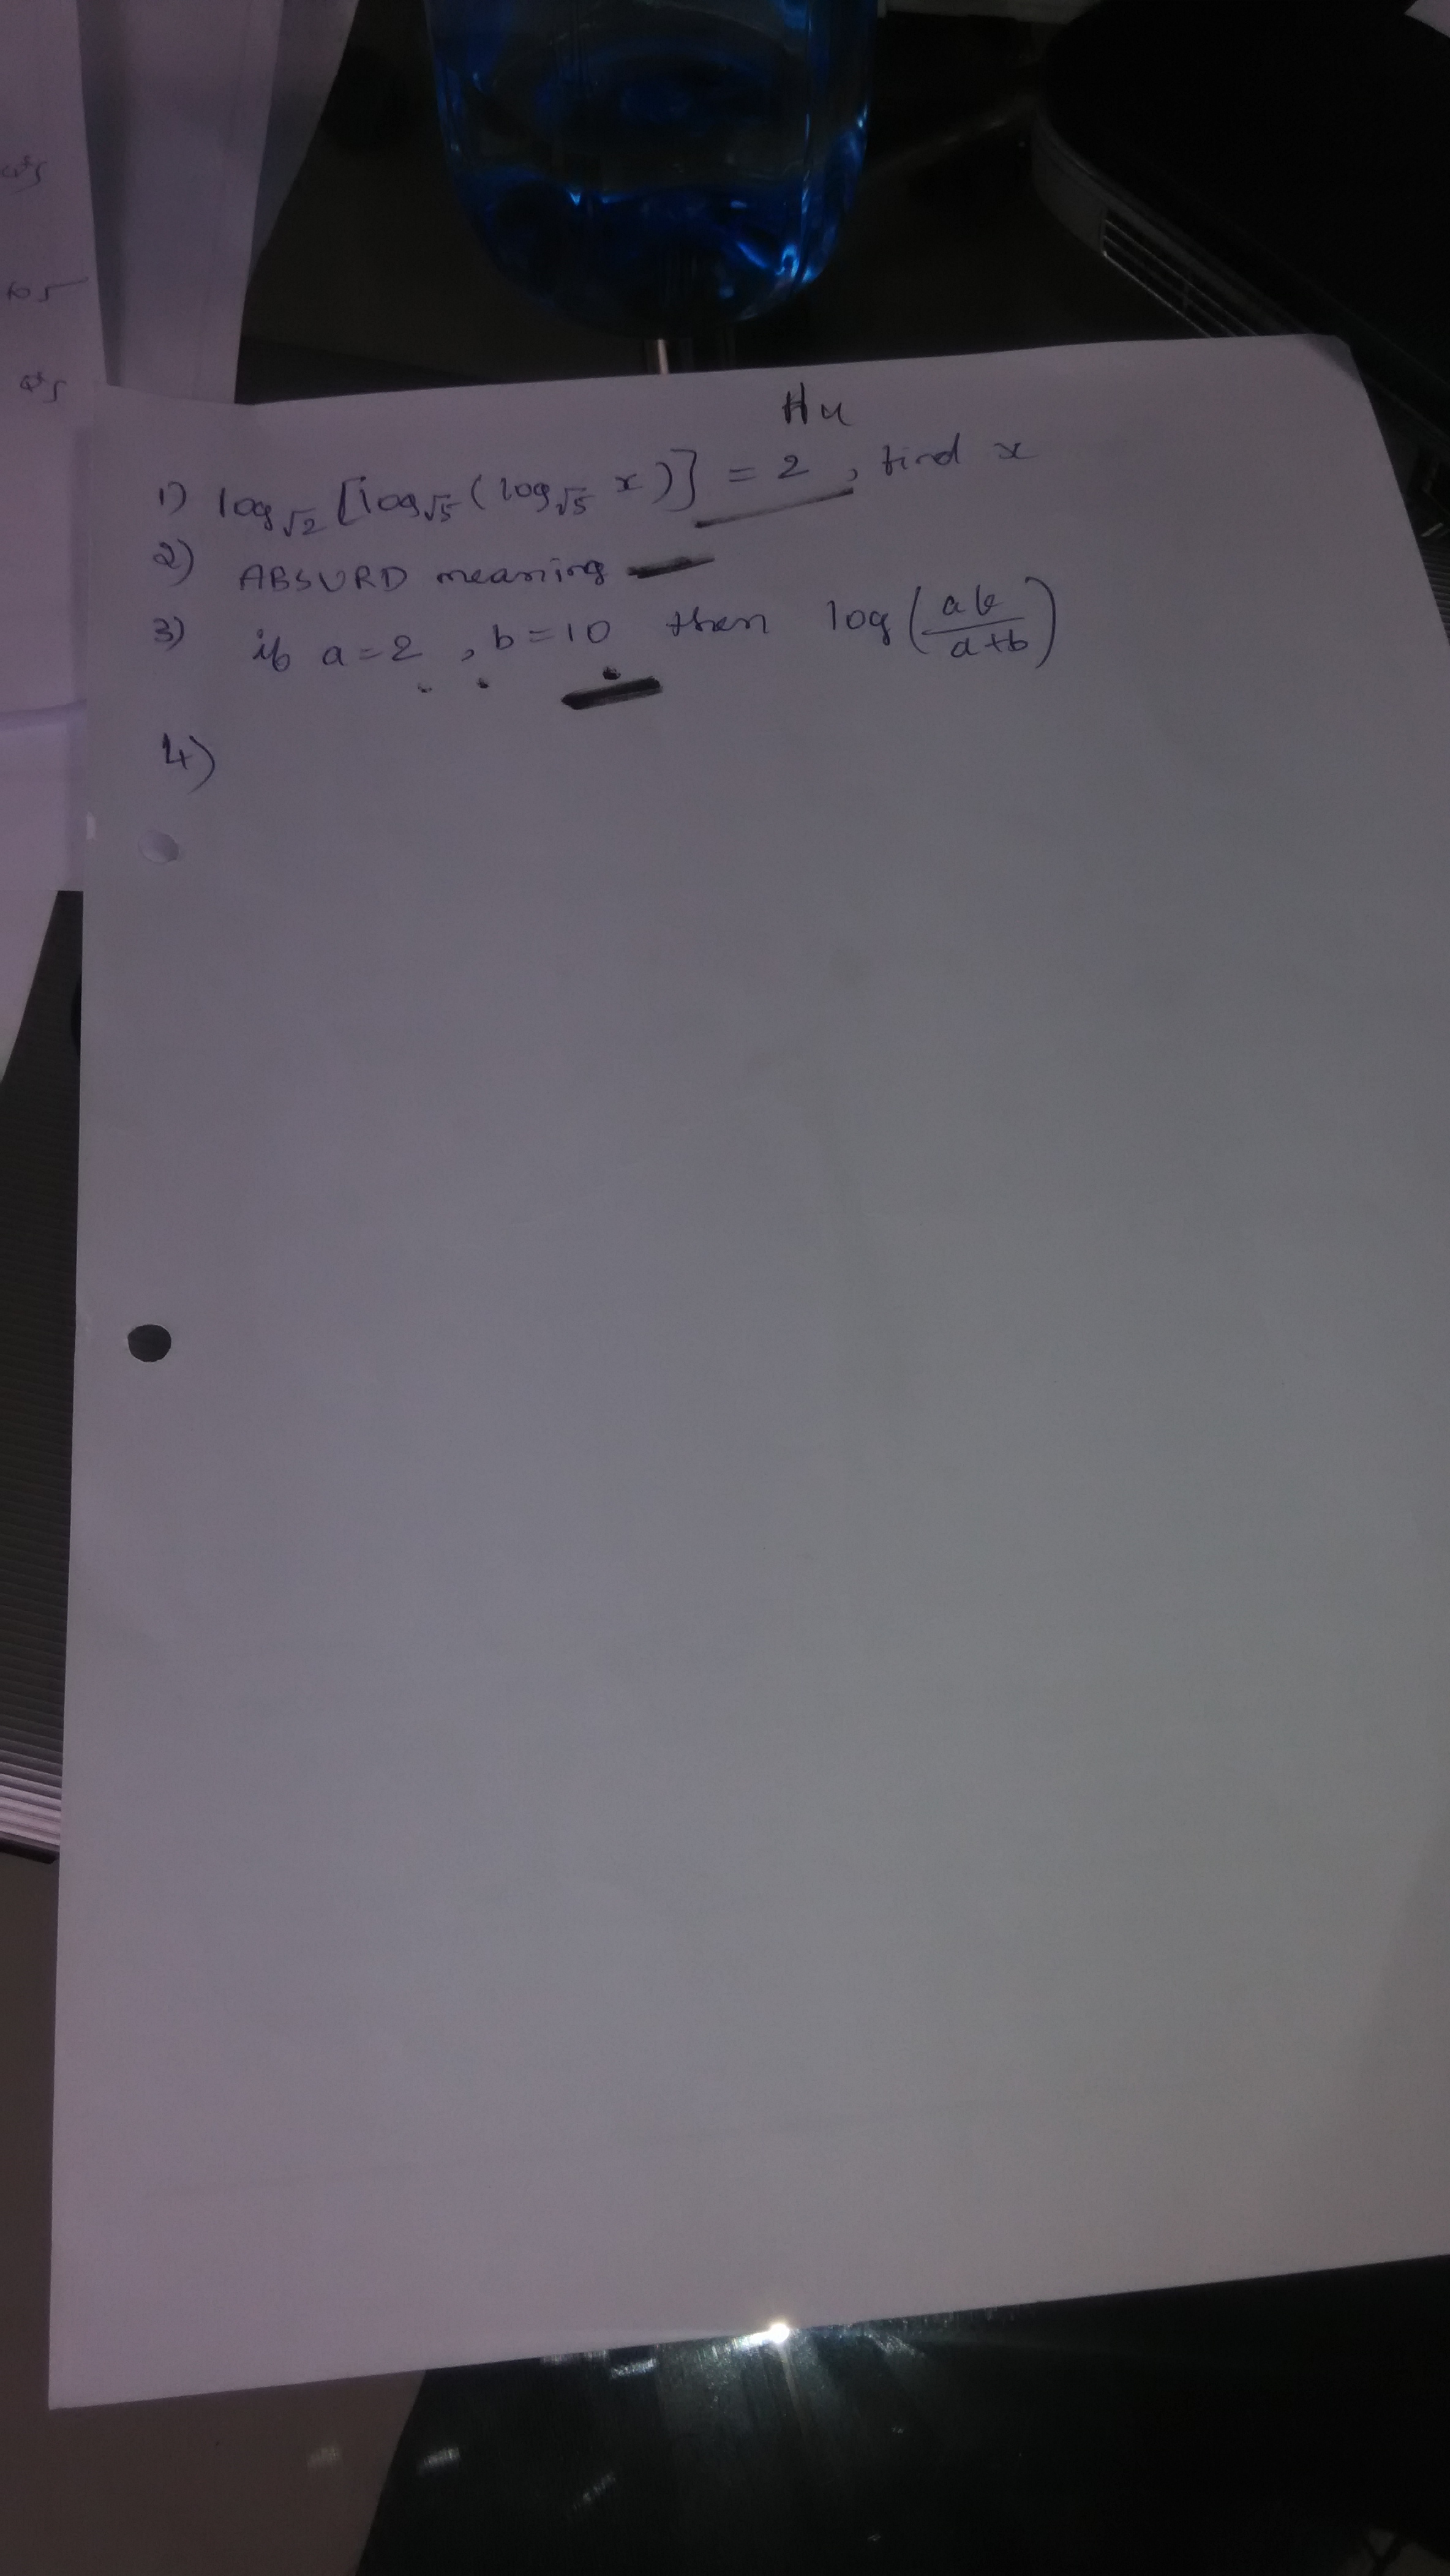 Hu
1) log√2 [log√5 (log√5 x)] = 2, find x
2) ABSURD meaning
3) if a=2, b=10 then log(ab/a+b)
4)